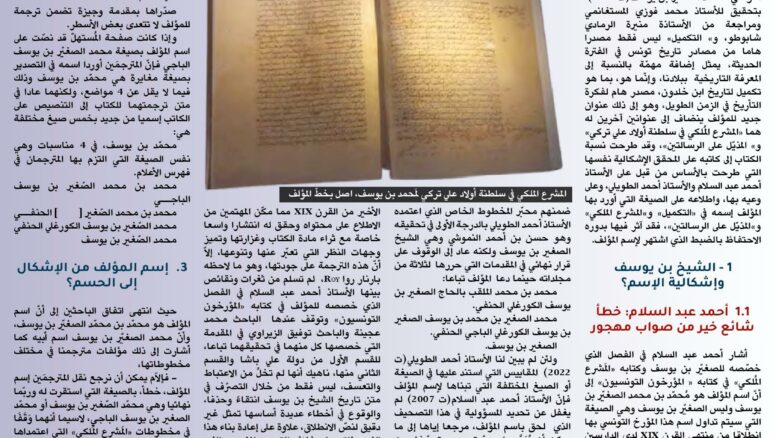 بتحقيق للأستاذ محمد فوزي المستغانمي
ومراجعة من الأستاذة منيرة الرمادي
شابوطو، و» التكميل» ليس فقط مصدرا
هاما من مصادر تاريخ تونس في الفترة
الحديثة، يمثل إضافة مهمّة بالنسبة إلى
المعرفة التاريخية ببلادنا، وإنّما هو، بما هو
تكميل لتاريخ ابن خلدون، مصدر هام لفكرة
التأريخ في الزمن الطويل، وهو إلى ذلك عنوان
جديد للمؤلف ينضاف إلى عنوانين آخرين له
هما «المشرع المُلكي في سلطنة أولاد علي تركي»
و» المذيّل على الرسالتين»، وقد طرحت نسبة
الكتاب إلى كاتبه على المحقق الإشكالية نفسها
التي طرحت بالأساس من قبل على الأستاذ
أحمد عبد السلام والأستاذ أحمد الطويلي، وعلى
وعيه بها، واطلاعه على الصيغة التي أورد بها
المؤلف إسمه في «التكميل» و«المشرع الملكي»
و«المذيّل على الرسالتين»، فقد آثر فيها بدوره
الاحتفاظ بالضبط الذي اشتهر لإسم المؤلف.
1 - الشيخ بن يوسف
وإشكالية الإسم؟
1.1 أحمد عبد السلام: خطأ
شائع خير من صواب مهجور
أشار أحمد عبد السلام في الفصل الذي
خصّصه للصغيّر بن يوسف وكتابه «المشرع
المُلكي» في كتابه « المؤرخون التونسيون» إلى
أنّ اسم المؤلف هو مُحمّد بن محمد بن يوسف
وليس الصغيّر بن يوسف وهي الصيغة
التي سيتم تداول اسم هذا المؤرخ التونسي بها
انطلاقا من منتهى القرن XIX لدى الدارسين
المشرع الملكي في سلطنة أولاد علي تركي لمحمد بن يوسف، أصل بخطّ المؤلف
ضمنهم محبّر المخطوط الخاص الذي اعتمده
الأستاذ أحمد الطويلي بالدرجة الأولى في تحقيقه
وهو حسن بن أحمد النموشي وهي الشيخ
الصغير بن يوسف ولكنه عاد إلى الوقوف على
قرار نهائي في المقدمات التي حررها لثلاثة من
مجلداته حينما دعا المؤلف تباعا:
محمد بن محمد الملقب بالحاج الصغير بن
يوسف الكورغلي الحنفي.
محمد بن محمد الصغير بن يوسف
بن يوسف الكورغلي الباجي الحنفي.
ولئن لم يبين لنا الأستاذ أحمد الطويلي(ت
2022) المقاييس التي استند عليها في الصيغة
أو الصيغ المختلفة التي تبناها لإسم المؤلف
فإنّ الأستاذ أحمد عبد السلام(ت 2007) لم
يغفل عن تحديد مسؤولية في هذا التصحيف
الذي لحق باسم المؤلف، مرجعا إياها إلى ما
الأخير من القرن XIX مما مكّن المهتمين من
الاطلاع على محتواه وحقق له انتشارا واسعا
خاصة مع ثراء مادة الكتاب وغزارتها وتميز
وجهات النظر التي تعبّر عنها وتنوعها، إلاّ
أنّ هذه الترجمة على جودتها، وهو ما لاحظه
بارنار روا Roy، لم تسلم من ثغرات ونقائص
بينها الأستاذ أحمد عبد السلام في الفصل
الذي خصصه للمؤلف في كتابه «المؤرخون
التونسيون» وتوقف عندها الباحث محمد
عجينة والباحث توفيق الزيراوي في المقدمة
التي خصصها كل منهما في تحقيقهما تباعا،
للقسم الأول من دولة علي باشا والقسم
الثاني منها، ناهيك أنها لم تخلُ من الاعتباط
والتعسف، ليس فقط من خلال التصرّف في
متن تاريخ الشيخ بن يوسف انتقاء وحذفا،
والوقوع في أخطاء عديدة أساسها تمثل غير
دقيق لنصّ الانطلاق، علاوة على إعادة بناء هذا
صدّراها بمقدمة وجيزة تضمن ترجمة
للمؤلف لا تتعدى بعض الأسطر.
وإذا كانت صفحة المُستهلّ قد نصّت على
اسم المؤلف بصيغة محمد الصغيّر بن يوسف
الباجي فإنّ المترجمَين أوردا اسمه في التصدير
بصيغة مغايرة هي محمّد بن يوسف وذلك
فيما لا يقل عن 4 مواضع، ولكنهما عادا في
متن ترجمتهما للكتاب إلى التنصيص على
الكاتب إسميا من جديد بخمس صيغ مختلفة
هي:
محمّد بن يوسف، في 4 مناسبات وهي
نفس الصيغة التي التزم بها المترجمان في
فهرس الأعلام.
محمد بن محمد الصغير بن يوسف
الباجـي
محمد بن محمد الصغير [ ] الحنفي
محمد بن محمد الصغير الكورغلي الحنفي
محمد الصغير بن يوسف
3. إسم المؤلف من الإشكال
إلى الحسم؟
حيث انتهى اتفاق الباحثين إلى أنّ اسم
المؤلف هو محمّد بن محمّد الصغيّر بن يوسف،
وأنّ محمد الصغيّر بن يوسف اسم أبيه كما
أشارت إلى ذلك مؤلفات مترجمنا في مختلف
مخطوطاتها،
– فإلام يمكن أن نرجع نقل المترجمَين إسم
المؤلف، خطأ، بالصيغة التي استقرت له وربّما
نهائيا وهي محمّد الصّغيّر بن يوسف أو محمد
الصغيّر بن يوسف الباجي، لاسيما أنهما وَقَفَا
في مخطوطات «المشرع الملكي» التي اعتمداها